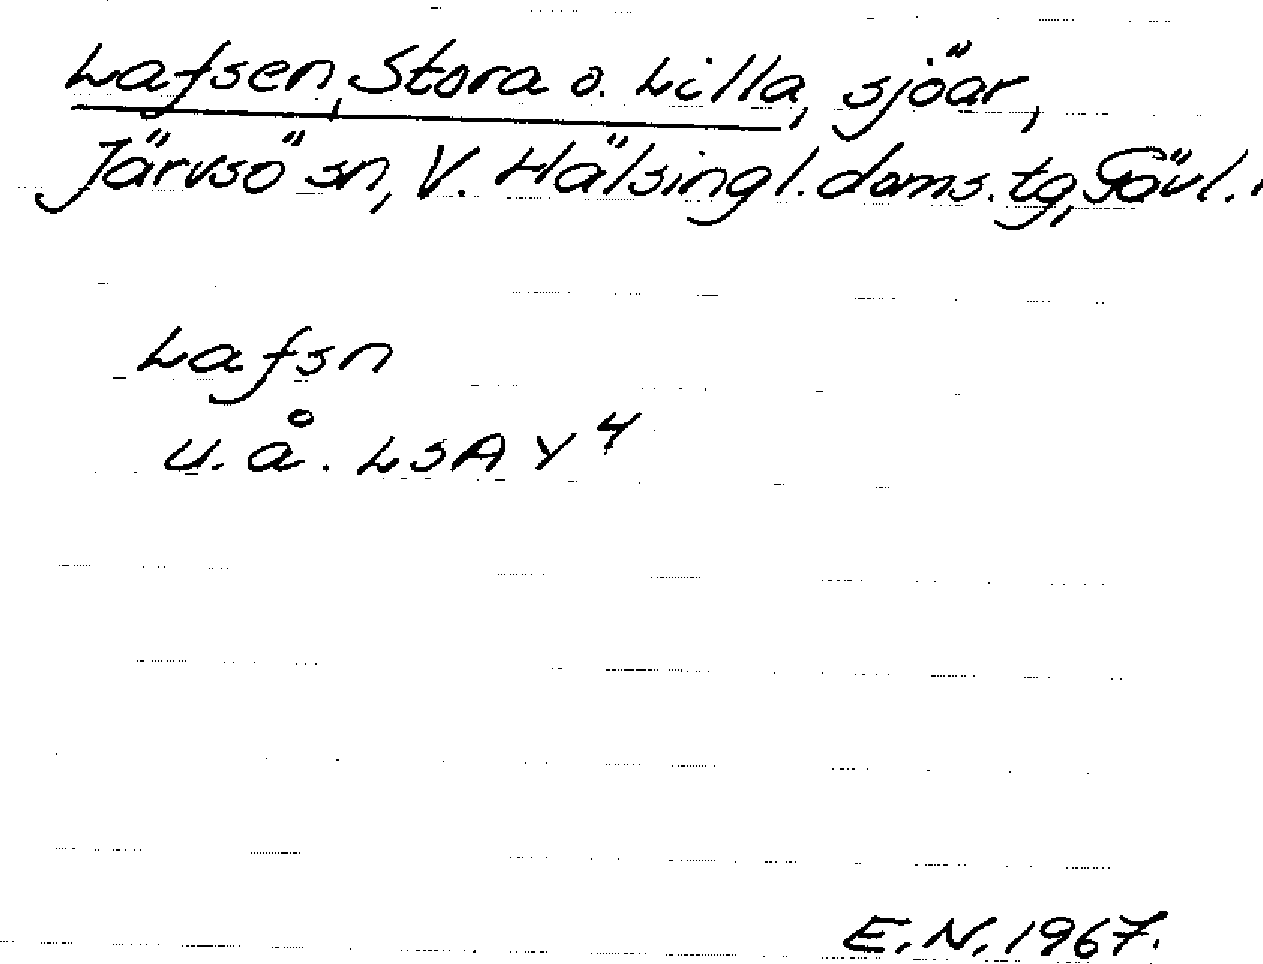 Lafsen, Stora o. Lilla, sjöar,
Järvsö sn, V. Hälsingl. doms. tg, Gävl. l
Lafsn
u. å. LSA Y 4
E. N. 1967.